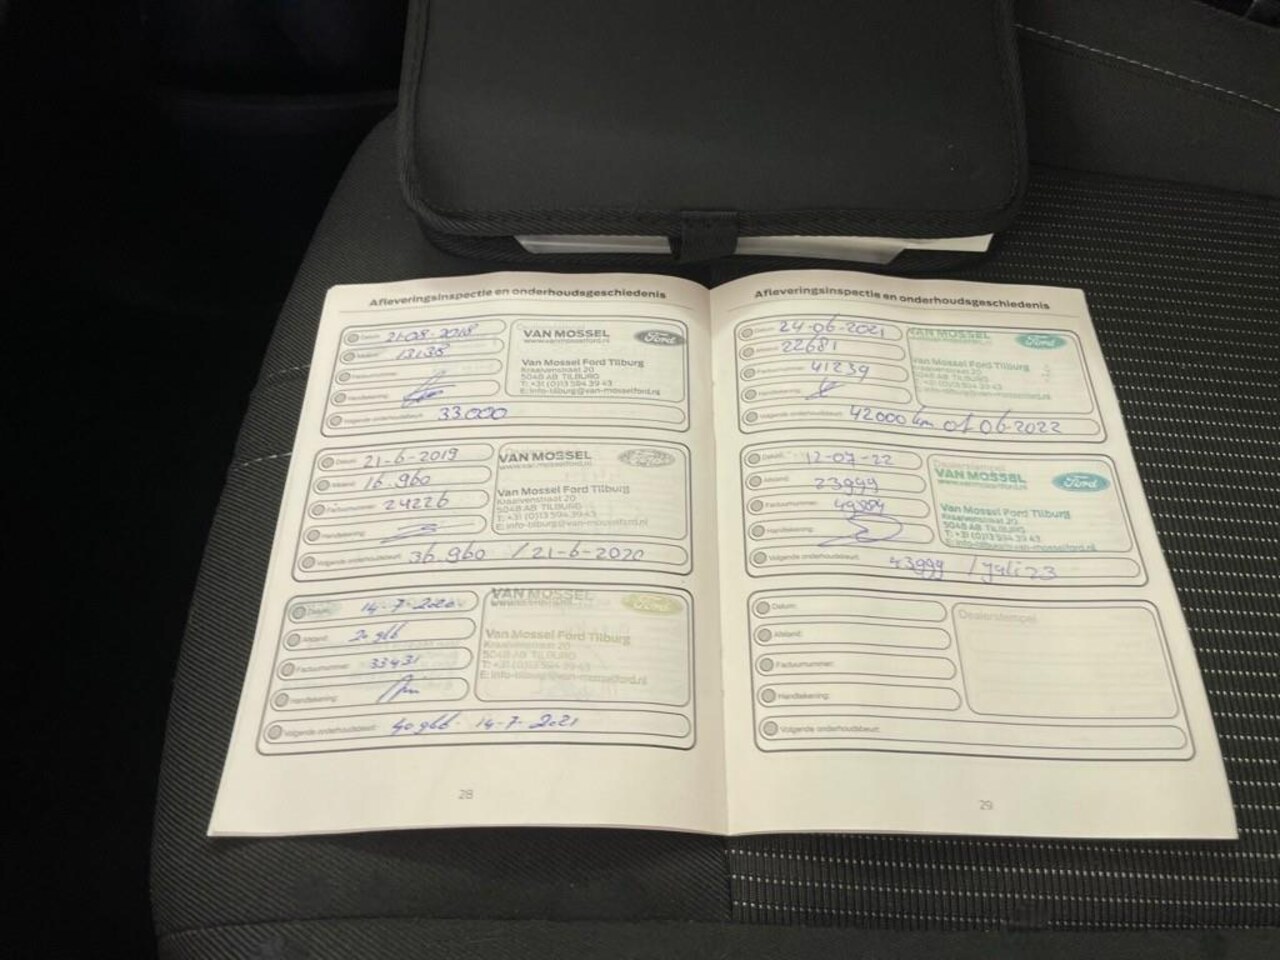 Afleveringsinspectie en onderhoudsgeschiedenis
Datum: 21-08-2018
Afstand: 13138
Factuurnummer:
Handtekening:
Volgende onderhoudsbeurt: 33.000
VAN MOSSEL Ford
www.vanmosselford.nl
Van Mossel Ford Tilburg
Kraaivenstraat 20
5048 AB TILBURG
T: +31 (0)13 594 39 43
E: info-tilburg@van-mosselford.nl
Datum: 21-6-2019
Afstand: 16.960
Factuurnummer: 24226
Handtekening:
Volgende onderhoudsbeurt: 36.960 / 21-6-2020
VAN MOSSEL Ford
www.vanmosselford.nl
Van Mossel Ford Tilburg
Kraaivenstraat 20
5048 AB TILBURG
T: +31 (0)13 594 39 43
E: info-tilburg@van-mosselford.nl
Datum: 14-7-2020
Afstand:
Factuurnummer: 33431
Handtekening:
Volgende onderhoudsbeurt: 14-7-2021
VAN MOSSEL Ford
Van Mossel Ford Tilburg
Kraaivenstraat 20
5048 AB TILBURG
T: +31 (0)13 594 39 43
E: info-tilburg@van-mosselford.nl
28
Afleveringsinspectie en onderhoudsgeschiedenis
Datum: 24-06-2021
Afstand: 22681
Factuurnummer: 41239
Handtekening:
Volgende onderhoudsbeurt: 42000 km of 06-2022
VAN MOSSEL Ford
www.vanmosselford.nl
Van Mossel Ford Tilburg
Kraaivenstraat 20
5048 AB TILBURG
T: +31 (0)13 594 39 43
E: info-tilburg@van-mosselford.nl
Datum: 12-07-22
Afstand: 23999
Factuurnummer:
Handtekening:
Volgende onderhoudsbeurt: 43999 / juli 23
Dealerstempel
VAN MOSSEL Ford
www.vanmosselford.nl
Van Mossel Ford Tilburg
Kraaivenstraat 20
5048 AB TILBURG
T: +31 (0)13 594 39 43
E: info-tilburg@van-mosselford.nl
Datum:
Afstand:
Factuurnummer:
Handtekening:
Volgende onderhoudsbeurt:
Dealerstempel
29